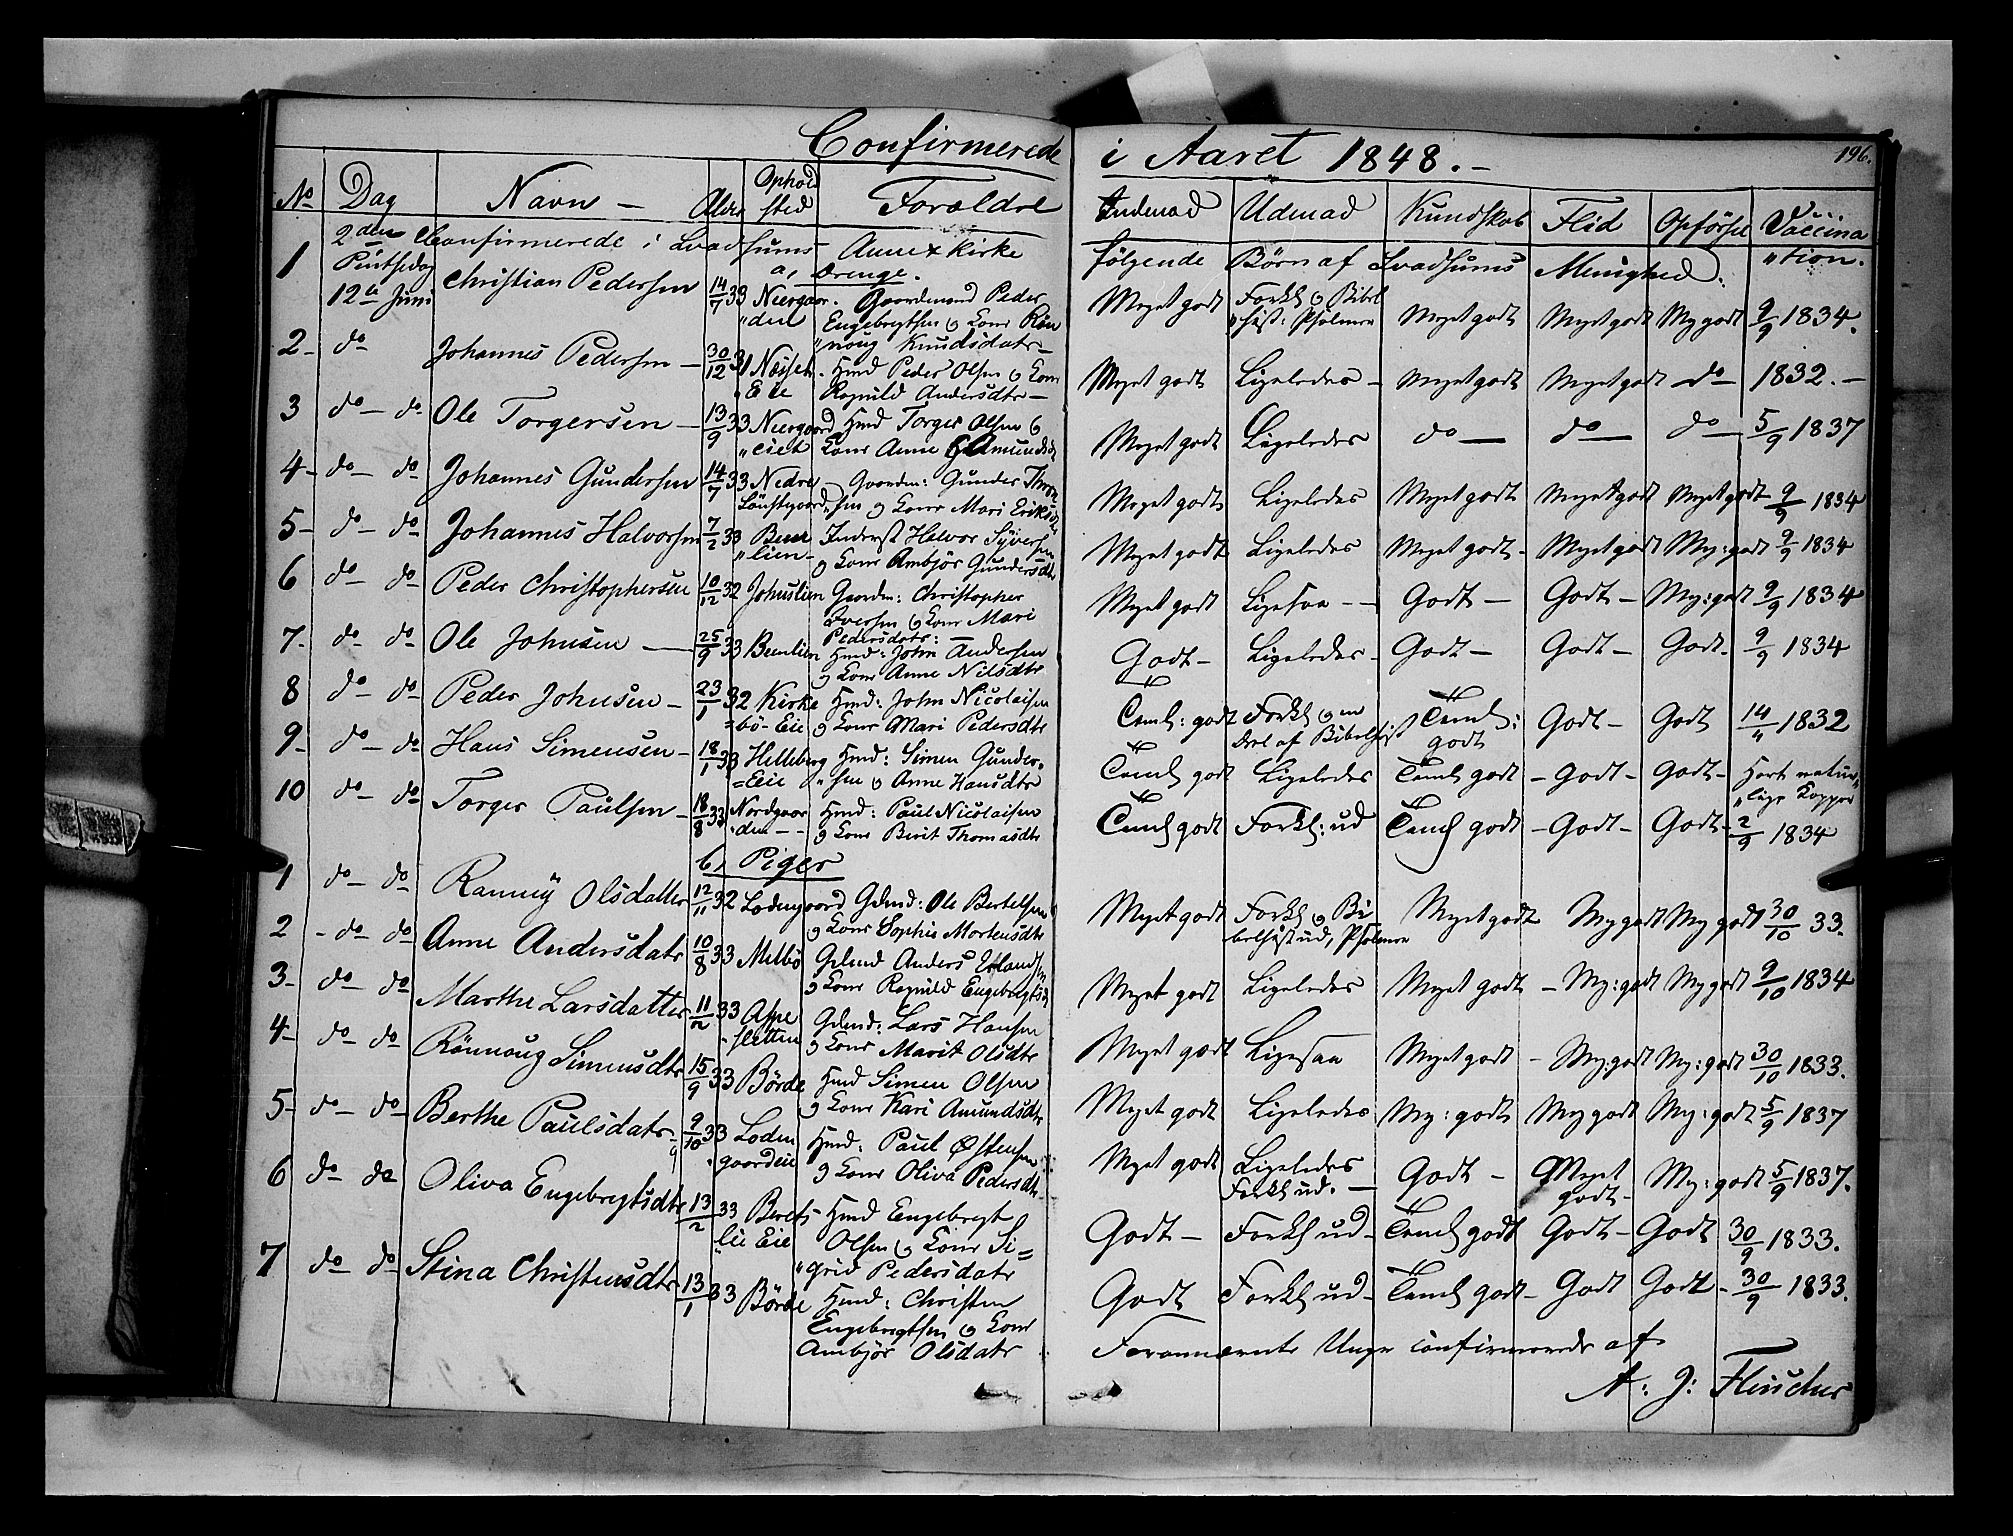 Confirmerede i Aaret 1848. –
196.
No Dag Navn – Alder Ophold sted Forældre Indenad Udenad Kundskab Flid Opförsel Vaccina
"tion.
2den Confirmerede i Svadsums Annex Kirke følgende Børn af Svadsums Menighed.
a, Drenge.
1 Pintsedag 12te Juni Christian Pedersen 14/7 33 Neergaar- Gaardmand Peder Meget godt Forkl og Bibel Meget godt Meget godt My godt 9/9 1834.
"den Engebregtsen og Kone Rön "hist: Psalmer
"noug Knudsdatr –
2 – do Johannes Pedersen – 30/12 31 Næsset- Hmd Peder Olsen og Kone Meget godt Ligeledes – Meget godt Meget godt do 1832. –
"Eie Rognild Andersdtr –
3 do – do Ole Torgersen – 13/9 33 Neergaard Hmd Torger Olsen og Meget godt Ligeledes do – do – do – 5/9 1837
"eiet Kone Anne Amundsdtr
4 – do – do Johannes Gundersen 14/7 33 Nedre – Gaardm: Gunder Thron Meget godt Ligeledes Meget godt Meget godt Meget godt – 9/9 1834
Lönsgaard "sen og Kone Mari Eriksdtr
5 – do – do Johannes Halvorsen 7/2 33 Beun Inderst Halvor Syversen Meget godt Ligeledes Meget godt – Meget godt My: godt 9/9 1834
"lien – og Kone Ambjör Gundersdtr
6 do – do Peder Christophersen 10/12 32 Johnslien Gaardm: Christopher Meget godt Ligesaa – – Godt – Godt – My: godt 9/9 1834
Iversen og Kone Mari
Pedersdatr: –
7. do – do Ole Johnsen – 25/9 33 Beunlien Hmd: John Andersen Godt – Ligeledes – Godt – Godt – Godt – 9/9 1834
og Kone Anne Nilsdtr
8 do – do Peder Johnsen – 23/1 32 Kirke Hmd: John Nicolaisen Teml: godt Forkl og en Teml: Godt – Godt 14/11 1832
"bö – Eie og Kone Mari Pedersdtr Deel af Bibelhist godt
9 – do – do Hans Simensen – 18/1 33 Helleberg Hmd: Simen Gunder- Teml godt Ligeledes Teml godt – Godt – Godt – Havt natur
=Eie "sen og Anne Hansdtr "lige Kopper
10 do – do Torger Paulsen – 18/8 33 Nordgaar Hmd: Paul Nicolaisen Teml godt Forkl: ud Teml godt – Godt – Godt – 2/9 1834
"den – – og Kone Birit Thomasdtr
b, Piger
1 do – do Ranney Olsdatter 12/11 32 Lodengaard Gdmd: Ole Bertelsen Meget godt Forkl og Bi Meget godt My godt My godt 30/10 33.
og Kone Sophie Mortensdtr belhist ud, Psalmer
2 – do do Anne Andersdatr 10/8 33 Melbö Gdmd Anders Erlandsen Meget godt Ligeledes Meget godt – My: godt My godt 9/10 1834
og Kone Rognild Engebregtsdtr
3 – do do Marthe Larsdatter 11/2 33 Aspe Gdmd: Lars Hansen Meget godt Ligesaa Meget godt – My: godt My: godt 30/10 1833.
"sletten og Kone Marit Olsdtr
4 – do do Rönnoug Simensdtr 15/9 33 Börde Hmd Simen Olsen Meget godt Ligeledes My: godt My godt My: godt 5/9 1837
og Kone Kari Amundsdtr
5 – do – do Berthe Paulsdatr – 9/10 33 Loden Hmd: Paul Østensen Meget godt Ligeledes Godt – Meget My: godt 5/9 1837.
"gaardeie og Kone Oliva Pedersdtr Forkl ud. – godt –
6 do do Oliva Engebregtsdtr 13/2 33 Berets Hmd Engebregt Godt – Forkl ud – Teml godt Godt – Godt 30/9 1833.
"lie Eie Olsen og Kone Si=
"grid Pedersdatr
7 do do Stina Christensdtr 13/1 33 Börde Hmd: Christen Godt Forkl ud – Teml godt – Godt Godt – 30/9 1833.
Engebregtsen og Kone
Ambjör Olsdatr
Forannævnte Unge confirmerede af
A: G: Fleischer